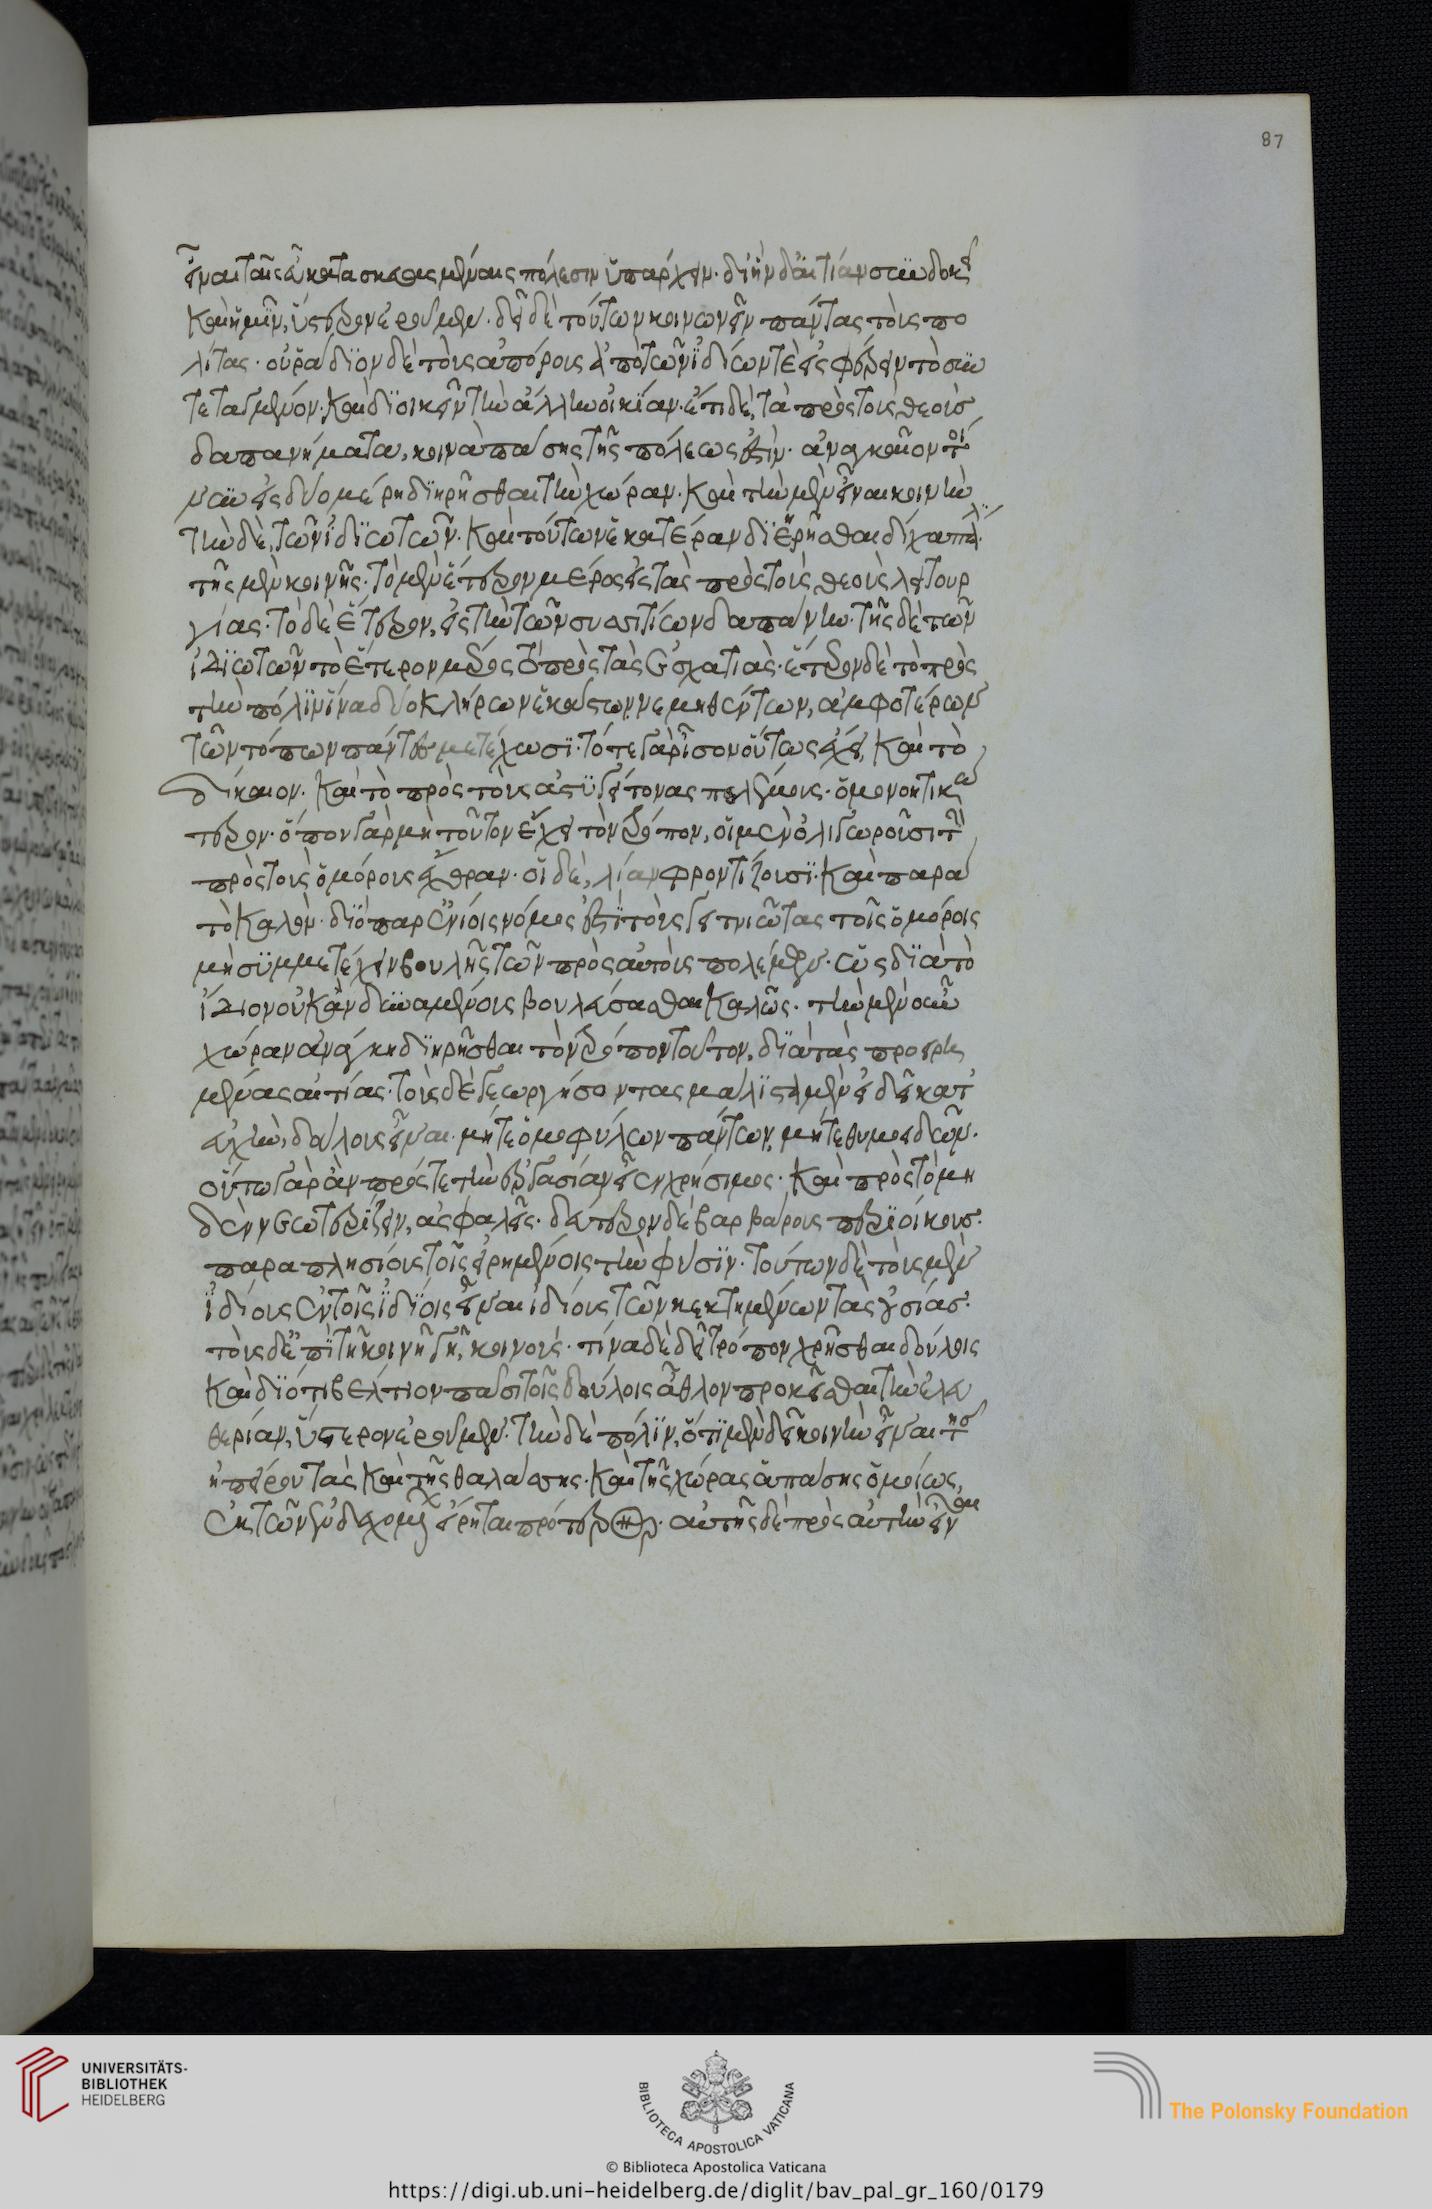 87
εἶναι ταῖς εὖ κατασκευασμέναις πόλεσιν ὑπάρχειν· δι' ἣν δ' αἰτίαν συνδοκεῖ
καὶ ἡμῖν, ὕστερον ἐροῦμεν· δεῖ δὲ τούτων κοινωνεῖν πάντας τοὺς πο
λίτας· οὐ ῥάδιον δὲ τοὺς ἀπόρους ἀπὸ τῶν ἰδίων τὲ εἰσφέρειν τὸ συν
τεταγμένον· καὶ διοικεῖν τὴν ἄλλην οἰκίαν· ἔτι δὲ, τὰ πρὸς τοὺς θεοὺς
δαπανήματα, κοινὰ πάσης τῆς πόλεως ἐστίν· ἀναγκαῖον τοί
νυν εἰς δύο μέρη διῃρῆσθαι τὴν χώραν· καὶ τὴν μὲν εἶναι κοινὴν
τὴν δὲ, τῶν ἰδιωτῶν· καὶ τούτων ἑκατέραν διῃρῆσθαι δίχα πάλιν·
τῆς μὲν κοινῆς· τὸ μὲν ἕτερον μέρος εἰς τὰς πρὸς τοὺς θεοὺς λειτουρ
γίας· τὸ δὲ ἕτερον, εἰς τὴν τῶν συσσιτίων δαπάνην· τῆς δὲ τῶν
ἰδιωτῶν τὸ ἕτερον μέρος τὸ πρὸς τὰς ἐσχατιὰς· ἕτερον δὲ τὸ πρὸς
τὴν πόλιν ἵνα δύο κλήρων ἑκάστων νεμηθέντων, ἀμφοτέρων
τῶν τόπων πάντες μετέχωσι· τό τε γὰρ ἴσον οὕτως ἔχει, καὶ τὸ
δίκαιον· καὶ τὸ πρὸς τοὺς ἀστυγείτονας πολέμους· ὁμονοητικώ
τερον· ὅπου γὰρ μὴ τοῦτον ἔχει τὸν τρόπον, οἱ μὲν ὀλιγωροῦσι τῆς
πρὸς τοὺς ὁμόρους ἔχθραν· οἱ δὲ, λίαν φροντίζουσι· καὶ παρὰ
τὸ καλόν· διὸ παρ' ἐνίοις νόμος ἐστὶ τοὺς γειτνιῶντας τοῖς ὁμόροις
μὴ συμμετέχειν βουλῆς τῶν πρὸς αὐτοὺς πολέμων· ὡς διὰ τὸ
ἴδιον οὐκ ἂν δυναμένους βουλεύσασθαι καλῶς· τὴν μὲν οὖν
χώραν ἀνάγκη διῃρῆσθαι τὸν τρόπον τοῦτον, διὰ τὰς προειρη
μένας αἰτίας· τοὺς δὲ γεωργήσοντας μάλιστα μὲν εἰ δεῖ κατ'
εὐχὴν, δούλους εἶναι· μήτε ὁμοφύλων πάντων, μήτε θυμοειδῶν·
οὕτω γὰρ ἂν πρός τε τὴν ἐργασίαν εἶεν χρήσιμοι· καὶ πρὸς τὸ μη
δὲν νεωτερίζειν, ἀσφαλεῖς· δεύτερον δὲ βαρβάρους περιοίκους·
παραπλησίους τοῖς εἰρημένοις τὴν φύσιν· τούτων δὲ τοὺς μὲν
ἰδίους ἐν τοῖς ἰδίοις εἶναι ἰδίους τῶν κεκτημένων τὰς οὐσίας·
τοὺς δὲ ἐπὶ τῇ κοινῇ γῇ, κοινούς· τίνα δὲ δεῖ τρόπον χρῆσθαι δούλοις
καὶ διότι βέλτιον πᾶσι τοῖς δούλοις ἆθλον προκεῖσθαι τὴν ἐλευ
θερίαν, ὕστερον ἐροῦμεν· τὴν δὲ πόλιν, ὅτι μὲν δεῖ κοινὴν εἶναι τῆς
ἠπείρου τὲ καὶ τῆς θαλάσσης· καὶ τῆς χώρας ἁπάσης ὁμοίως,
ἐκ τῶν ἐνδεχομένων εἴρηται πρότερον· αὐτῆς δὲ πρὸς αὑτὴν εἶναι
UNIVERSITÄTS-
BIBLIOTHEK
HEIDELBERG
BIBLIOTECA APOSTOLICA VATICANA
The Polonsky Foundation
© Biblioteca Apostolica Vaticana
https://digi.ub.uni-heidelberg.de/diglit/bav_pal_gr_160/0179